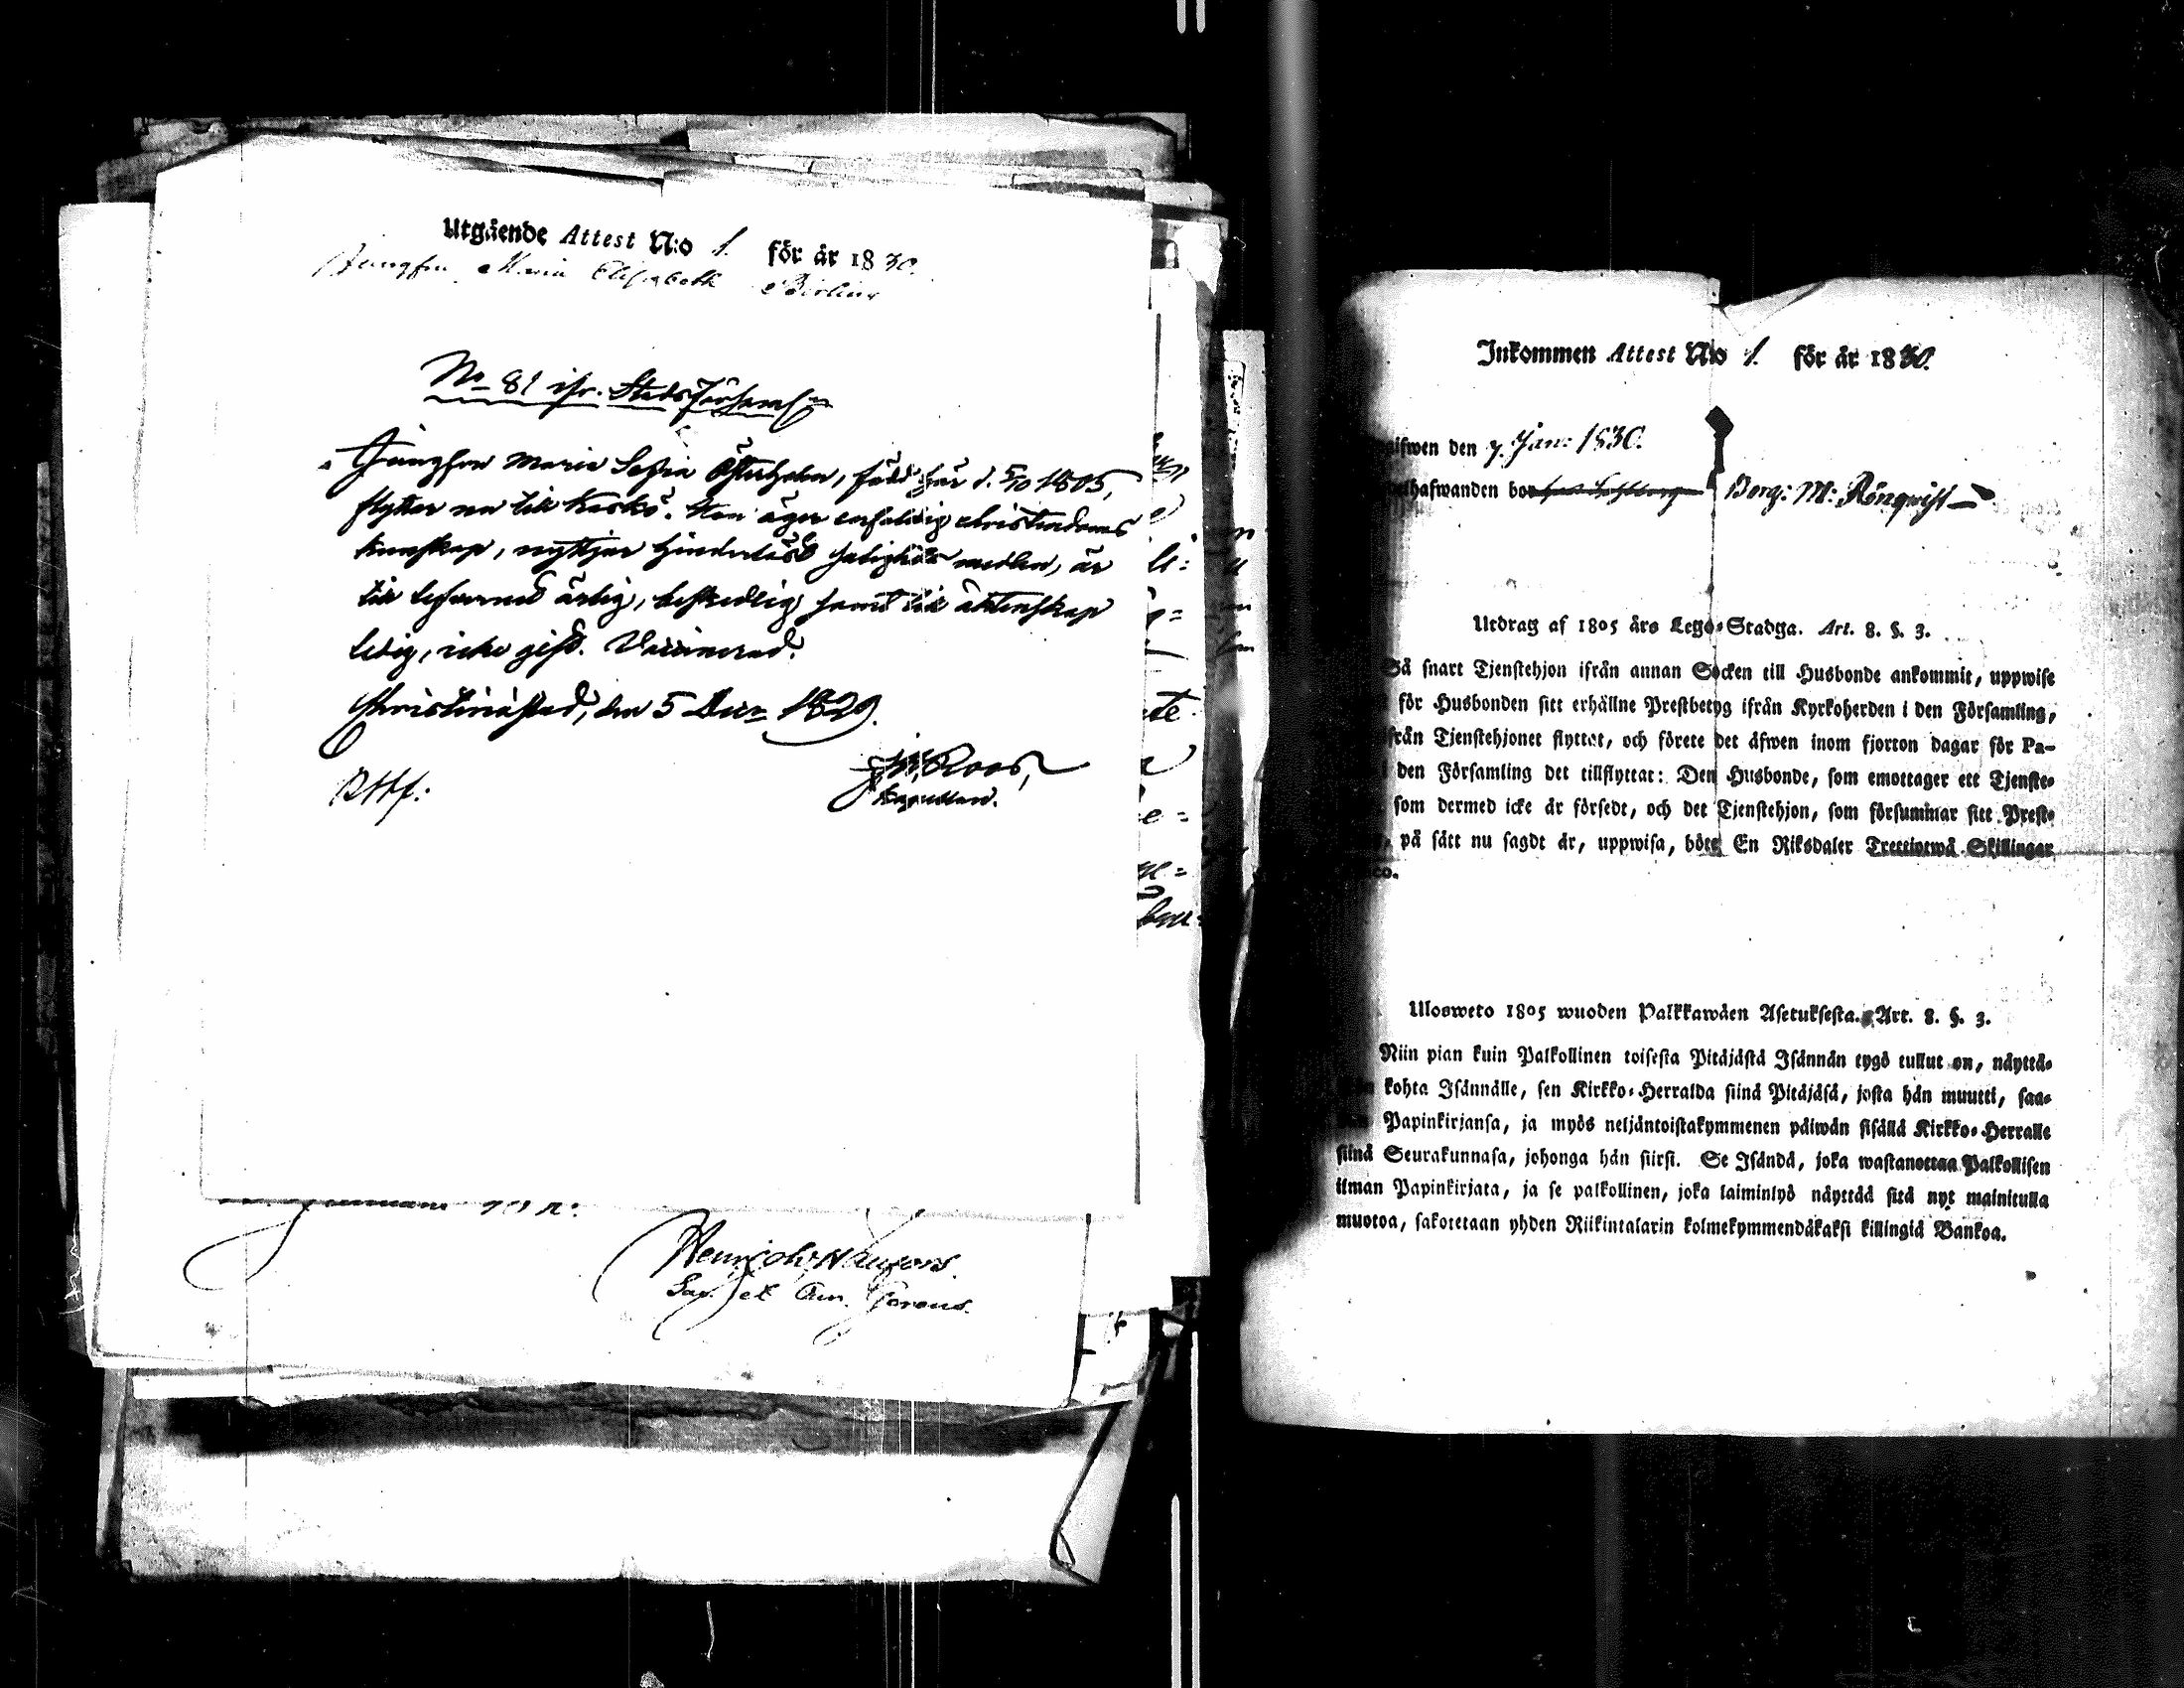 Utgående Attest N:o 1. för år 1830.
Jungfru Maria Elisabeth
No 81 ifr. Stadsförsaml:n
Jungfru Maria Sofia Österholm, född här d. 5/10 1805,
flyttar nu till Kaskö. Hon äger enfaldig christendoms
kunskap, nyttjar hinderlöst salighets medlen, är
till lefverned ärlig, beskedlig samt till äktenskap
ledig, icke gift. Vaccinerad.
Christinæstad, den 5 Decr 1829.
Roos,
Kapellan.
Henrich
Sac. et Adv. Gerens.
Inkommen Attest N:o 1. för år 1830.
gifwen den 7. Jan: 1830.
elhafwanden bor Borg: M: Rönqwist
Utdrag af 1805 års Lego-Stadga. Art. 8. §. 3.
Så snart Tjenstehjon ifrån annan Socken till Husbonde ankommit, uppwise
för Husbonden sitt erhållne Prestbetyg ifrån Kyrkoherden i den Församling,
från Tjenstehjonet flyttat, och förete det äfwen inom fjorton dagar för Pa-
i den Församling det tillflyttat: Den Husbonde, som emottager ett Tjenste-
som dermed icke är försedt, och det Tjenstehjon, som försummar sitt Prest-
på sätt nu sagdt är, uppwisa, böte En Riksdaler Trettiotwå Skillingar
co.
Ulosweto 1805 wuoden Palkkawäen Asetuksesta. Art. 8. §. 3.
Niin pian kuin Palkollinen toisesta Pitäjästä Isännän tygö tullut on, näyttä-
kohta Isännälle, sen Kirkko-Herralda siinä Pitäjäsä, josta hän muutti, saa-
Papinkirjansa, ja myös neljäntoistakymmenen päiwän sisällä Kirkko-Herralle
siinä Seurakunnasa, johonga hän siirsi. Se Isändä, joka wastanottaa Palkollisen
ilman Papinkirjata, ja se palkollinen, joka laiminlyö näyttää sitä nyt mainitulla
muotoa, sakotetaan yhden Riikintalarin kolmekymmendäkaksi killingiä Bankoa.